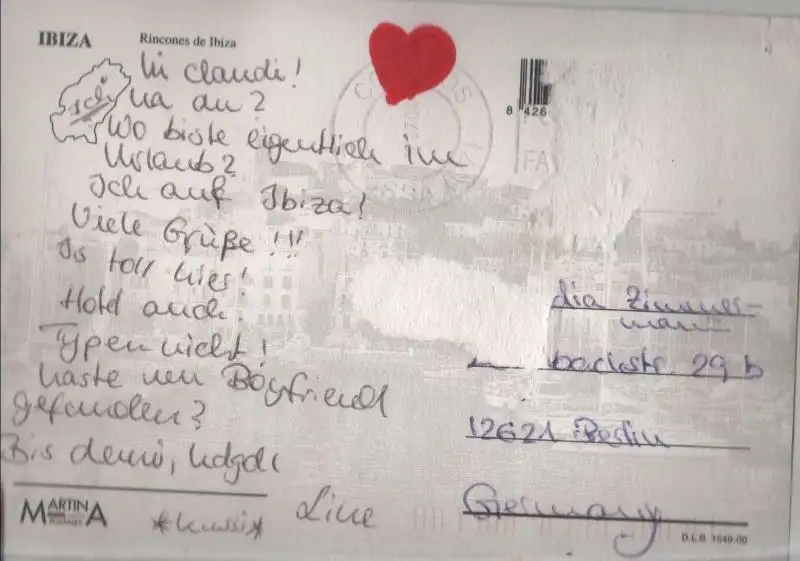 IBIZA Rincones de Ibiza
Hi Claudi!
ich
na du?
Wo biste eigentlich im
Urlaub?
Ich auf Ibiza!
Viele Grüße!!!
Is toll hier!
auch.
Typen nicht!
haste nen Boyfriend
gefunden?
Bis denni, hdgdl
Line
*kussi*
MARTINA
8 426
FA
dia Zimmer-
mann
29 b
12621 Berlin
Germany
D.L.B. 1549-00